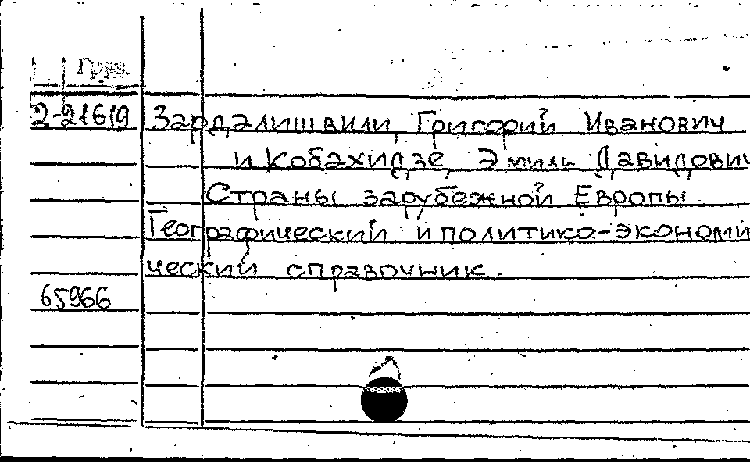 2-21619 Зардалишвили, Григорий Иванович
и Кобахидзе, Эмиль Давидович
Страны зарубежной Европы.
Географический и политико-экономи
ческий справочник.
65966